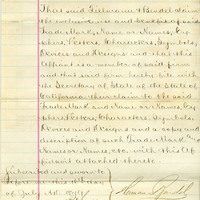 That said Fillmann & Bendel claim
the exclusive use and benefit of said
Trade Mark, Name or Names, Cy-
phers, Letters, Characters, Symbols,
Devices and Designs and that this
Affiant is a member of said firm
and that said firm hereby file with
the Secretary of State of the State of
California their claim to the said
Trade Mark, Name or Names, Cy-
phers, Letters, Characters, Symbols,
Devices and Designs and a copy and
description of such Trade Mark,
Name or Names, etc. with this Af-
fiant attached thereto
Subscribed and sworn to
before me this day
of July A.D. 18
Herman Bendel